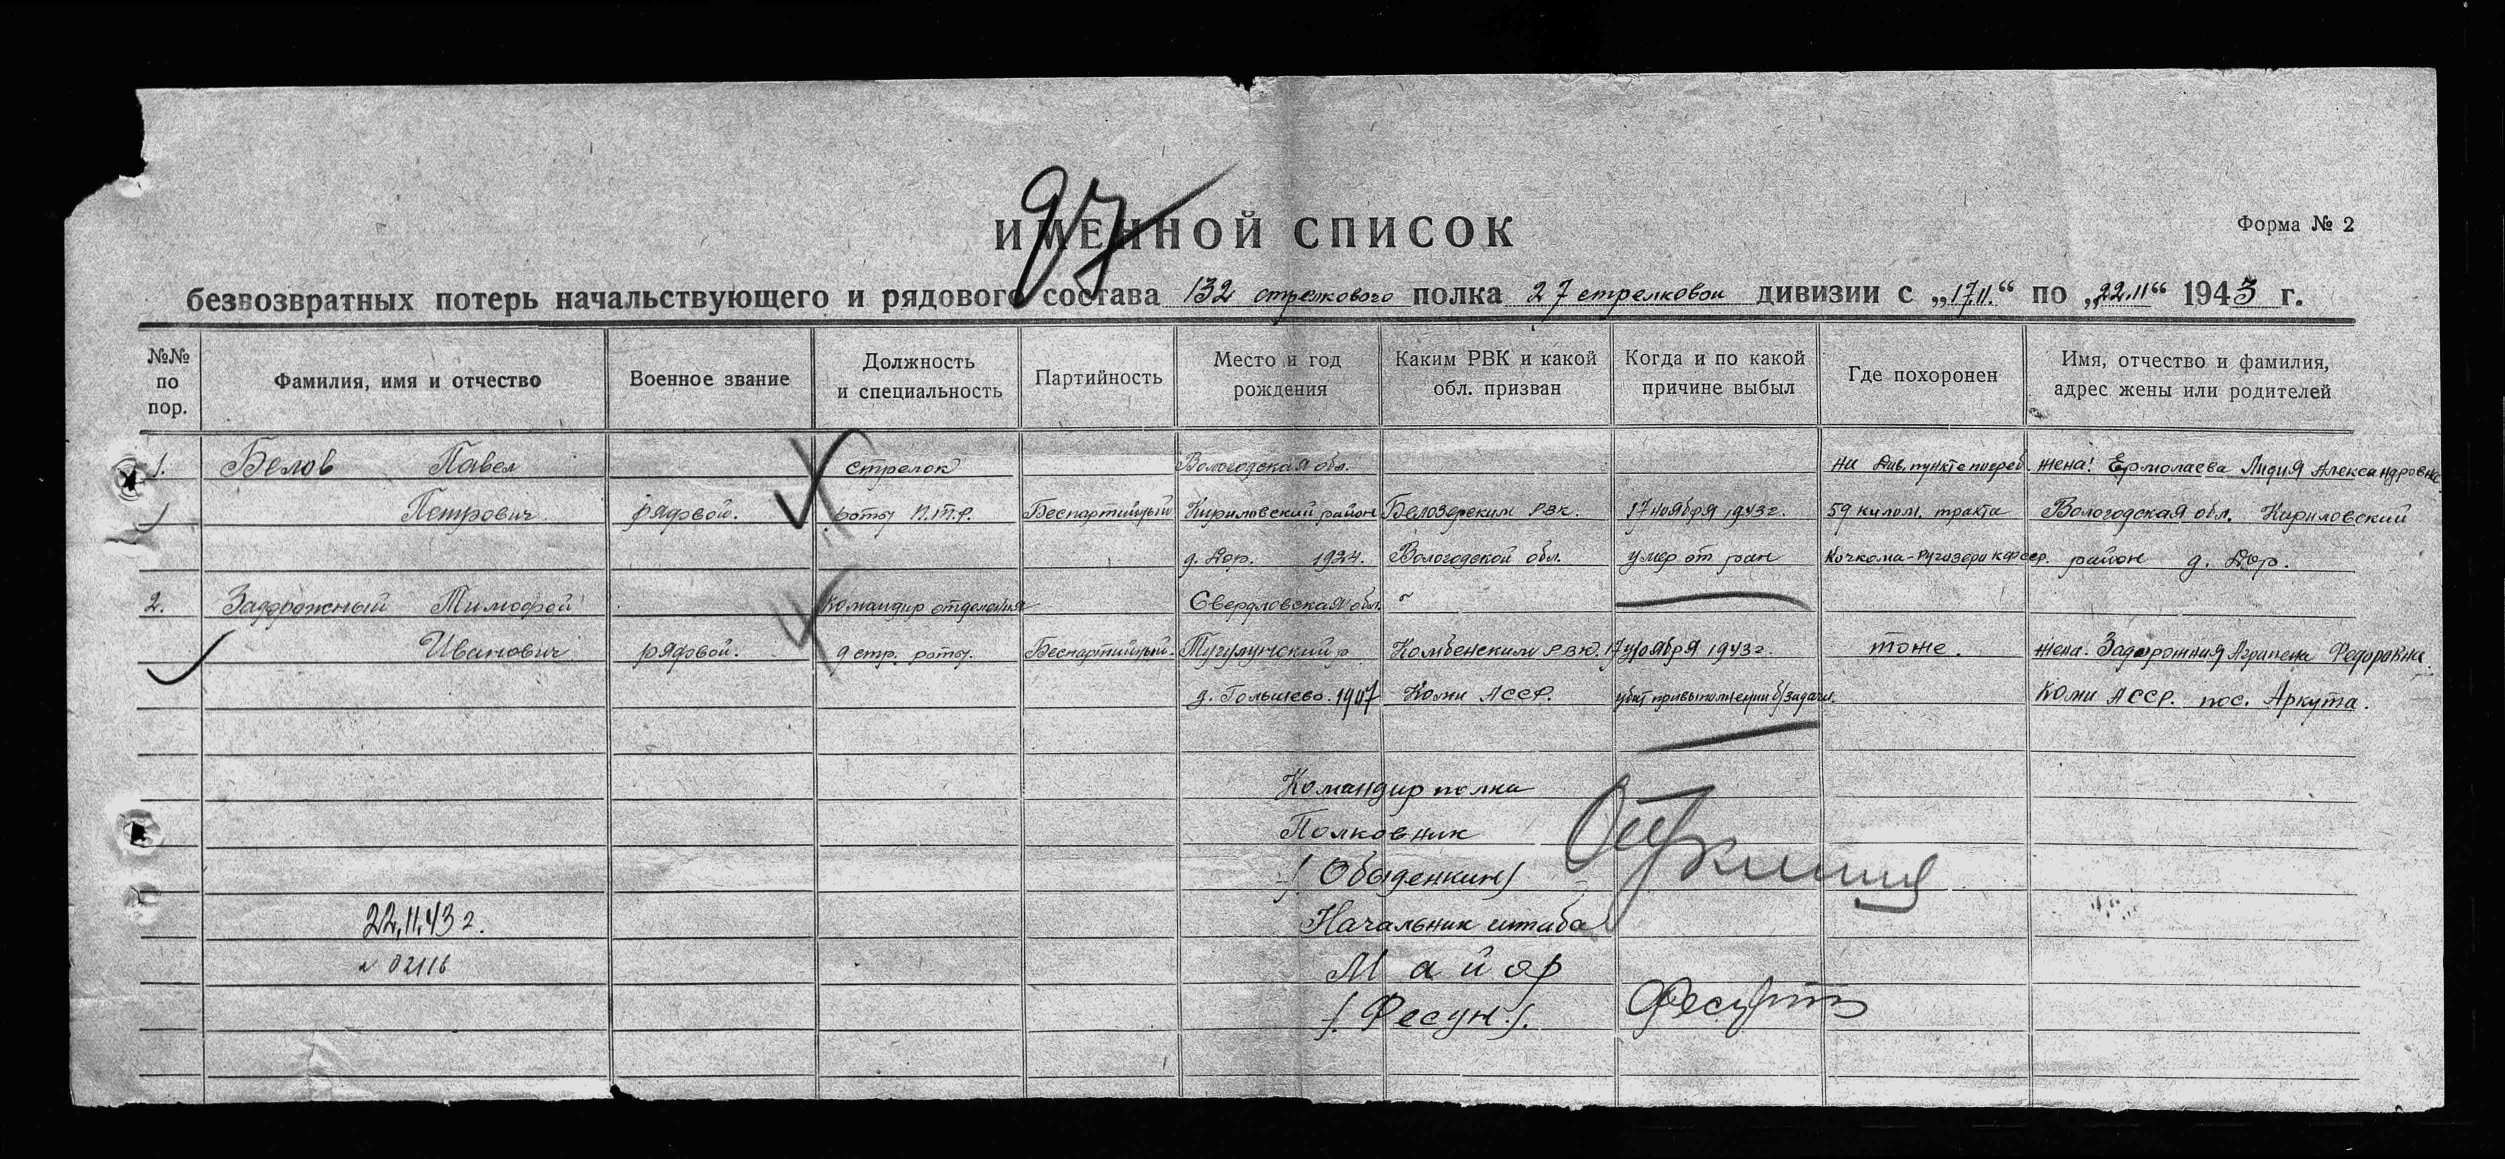 97
ИМЕННОЙ СПИСОК
Форма № 2
безвозвратных потерь начальствующего и рядового состава 132 стрелкового полка 27 стрелковой дивизии с „17.11.“ по „22.11“ 1943 г.
№№ по пор.
Фамилия, имя и отчество
Военное звание
Должность и специальность
Партийность
Место и год рождения
Каким РВК и какой обл. призван
Когда и по какой причине выбыл
Где похоронен
Имя, отчество и фамилия, адрес жены или родителей
1. Белов Павел стрелок Вологодская обл. на див. пункте погреб. жена: Ермолаева Лидия Александровна.
Петрович рядовой. роты П.Т.Р. Беспартийный Кириловский район Белозерским РВК. 17 ноября 1943 г. 59 килом. тракта Вологодская обл. Кириловский
д. Дор. 1924. Вологодской обл. умер от ран Кочкома-Ругозеро КФССР. район д. Дор.
2. Задорожный Тимофей Командир отделения Свердловская обл.
Иванович рядовой. 9 стр. роты. Беспартийный. РВК. 17 ноября 1943 г. тоже. жена. Задорожная Агрипена Федоровна.
д. Голышево. 1907 Коми АССР. убит при выполнении б/задачи. Коми АССР. пос. Аркута.
Командир полка
Полковник
/Обыденкин/
22.11.43 г. Начальник штаба
№ 02116 Майор
/.Фесун./.